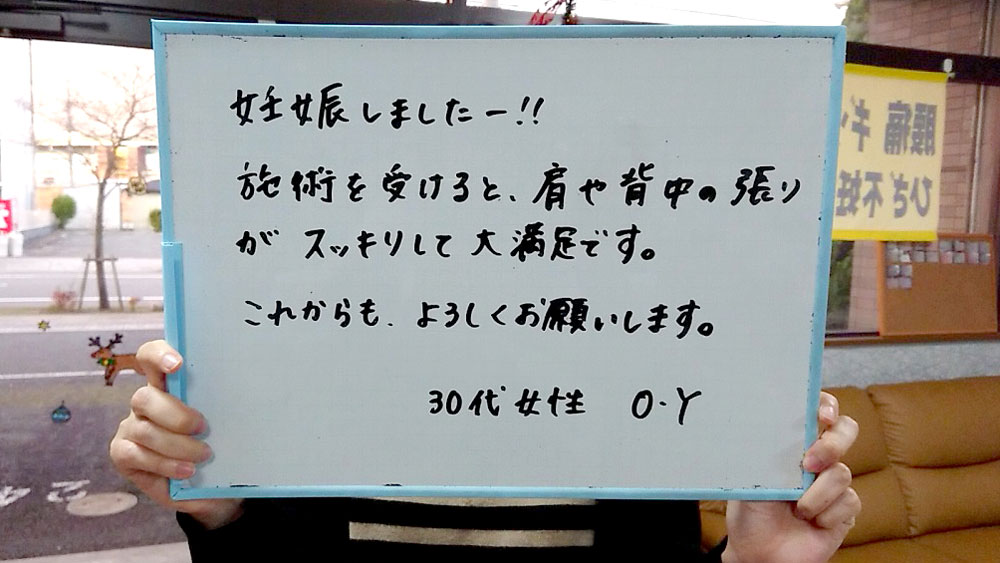 妊娠しましたー!!
施術を受けると、肩や背中の張り
がスッキリして大満足です。
これからも、よろしくお願いします。
30代女性 O・Y
頭痛 ギ
ひざ 不妊
24